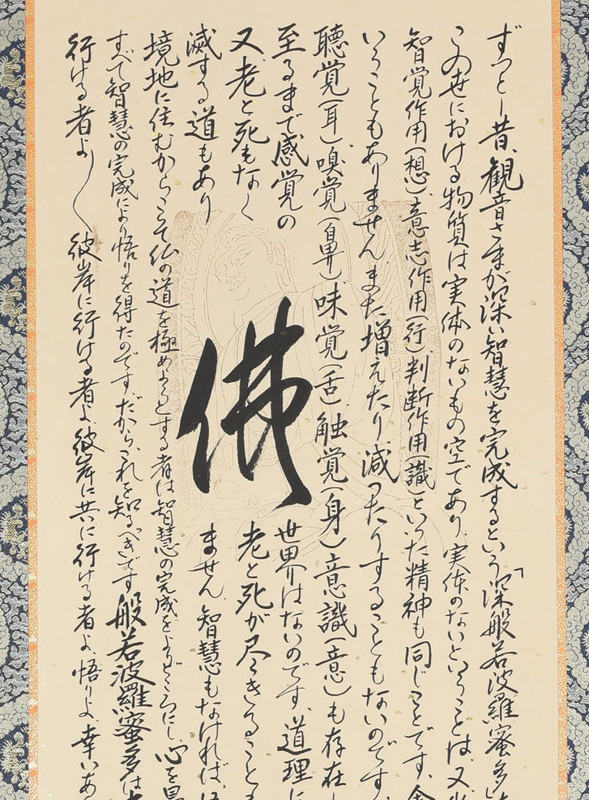 ずっと昔、観音さまが深い智慧を完成するという「深般若波羅蜜多
この世における物質は実体のないもの空であり、実体のないということは、又
智覚作用(想)、意志作用(行)判断作用(識)といった精神も同じことです。
いうこともありません。また増えたり減ったりすることもないのです。
聴覚(耳)嗅覚(鼻)味覚(舌)触覚(身)意識(意)も存在し
至るまで感覚の世界はないのです。道理に
又、老と死もなく老と死が尽きること
滅する道もありません。智慧もなければ、
境地に住むからこそ仏の道を極めようとする者は智慧の完成をよりどころにし、心を
すべて智慧の完成により悟りを得たのです。だから、これを知るべきです。般若波羅蜜多は
行ける者よ〱彼岸に行ける者よ、彼岸に共に行ける者よ、悟りよ、幸いあ
佛